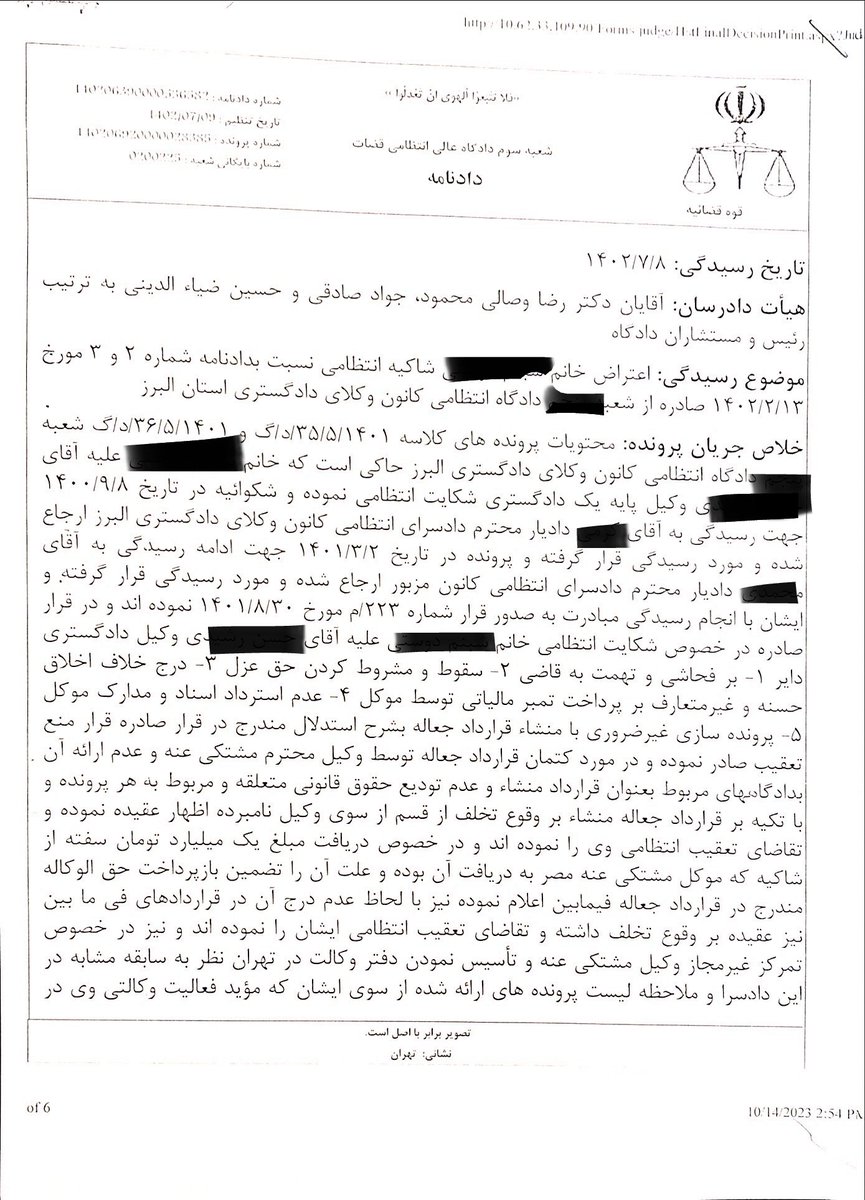 http://10.62.33.109:90/Forms/judge/HstFinalDecisionPrint.aspx?Jud
«فلا تتبعوا الهوی ان تعدلوا»
شعبه سوم دادگاه عالی انتظامی قضات
دادنامه
قوه قضائیه
شماره دادنامه :
تاریخ تنظیم : 1402/07/09
شماره پرونده :
شماره بایگانی شعبه :
تاریخ رسیدگی: ۱۴۰۲/۷/۸
هیأت دادرسان: آقایان دکتر رضا وصالی محمود، جواد صادقی و حسین ضیاء الدینی به ترتیب
رئیس و مستشاران دادگاه
موضوع رسیدگی: اعتراض خانم شاکیه انتظامی نسبت بدادنامه شماره ۲ و ۳ مورخ
۱۴۰۲/۲/۱۳ صادره از شعبه دادگاه انتظامی کانون وکلای دادگستری استان البرز
خلاص جریان پرونده: محتویات پرونده های کلاسه ۳۵/۵/۱۴۰۱/د/گ و ۳۶/۵/۱۴۰۱/د/گ شعبه
دادگاه انتظامی کانون وکلای دادگستری البرز حاکی است که خانم علیه آقای
وکیل پایه یک دادگستری شکایت انتظامی نموده و شکوائیه در تاریخ ۱۴۰۰/۹/۸
جهت رسیدگی به آقای دادیار محترم دادسرای انتظامی کانون وکلای دادگستری البرز ارجاع
شده و مورد رسیدگی قرار گرفته و پرونده در تاریخ ۱۴۰۱/۳/۲ جهت ادامه رسیدگی به آقای
دادیار محترم دادسرای انتظامی کانون مزبور ارجاع شده و مورد رسیدگی قرار گرفته و
ایشان با انجام رسیدگی مبادرت به صدور قرار شماره ۲۲۳/م مورخ ۱۴۰۱/۸/۳۰ نموده اند و در قرار
صادره در خصوص شکایت انتظامی خانم علیه آقای وکیل دادگستری
دایر ۱- بر فحاشی و تهمت به قاضی ۲- سقوط و مشروط کردن حق عزل ۳- درج خلاف اخلاق
حسنه و غیرمتعارف بر پرداخت تمبر مالیاتی توسط موکل ۴- عدم استرداد اسناد و مدارک موکل
۵- پرونده سازی غیرضروری با منشاء قرارداد جعاله بشرح استدلال مندرج در قرار صادره قرار منع
تعقیب صادر نموده و در مورد کتمان قرارداد جعاله توسط وکیل محترم مشتکی عنه و عدم ارائه آن
بدادگاههای مربوط بعنوان قرارداد منشاء و عدم تودیع حقوق قانونی متعلقه و مربوط به هر پرونده و
با تکیه بر قرارداد جعاله منشاء بر وقوع تخلف از قسم از سوی وکیل نامبرده اظهار عقیده نموده و
تقاضای تعقیب انتظامی وی را نموده اند و در خصوص دریافت مبلغ یک میلیارد تومان سفته از
شاکیه که موکل مشتکی عنه مصر به دریافت آن بوده و علت آن را تضمین بازپرداخت حق الوکاله
مندرج در قرارداد جعاله فیمابین اعلام نموده نیز با لحاظ عدم درج آن در قراردادهای فی ما بین
نیز عقیده بر وقوع تخلف داشته و تقاضای تعقیب انتظامی ایشان را نموده اند و نیز در خصوص
تمرکز غیرمجاز وکیل مشتکی عنه و تأسیس نمودن دفتر وکالت در تهران نظر به سابقه مشابه در
این دادسرا و ملاحظه لیست پرونده های ارائه شده از سوی ایشان که مؤید فعالیت وکالتی وی در
تصویر برابر با اصل است.
نشانی: تهران
of 6
10/14/2023 2:54 PM